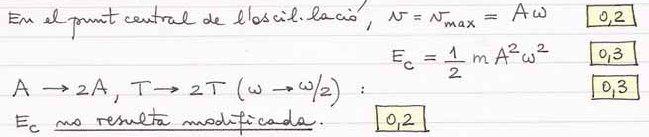 En el punt central de l'oscil·lació, v = vmax = Aω 0,2
Ec = 1/2 m A²ω² 0,3
A → 2A, T → 2T (ω → ω/2) : 0,3
Ec no resulta modificada. 0,2